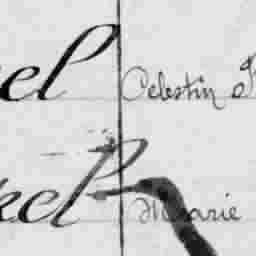 el Celestin
kel Marie